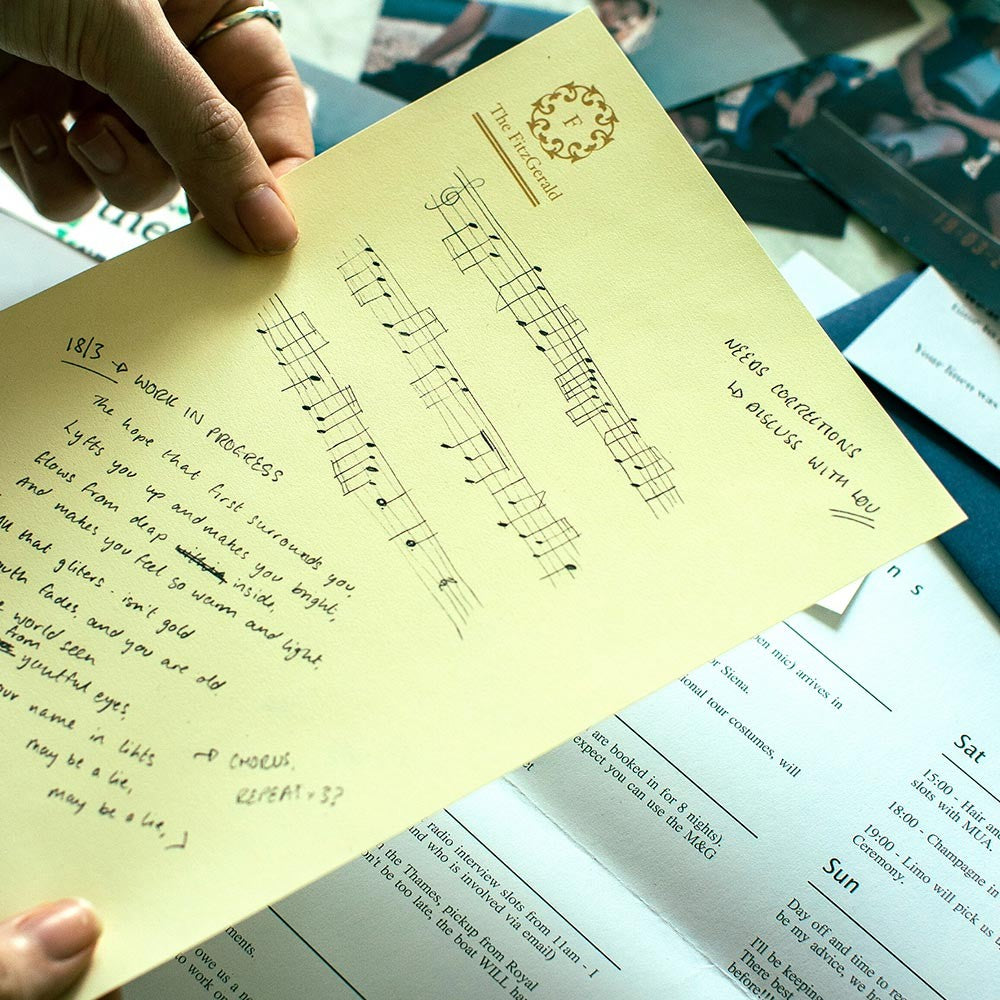 F
The FitzGerald
NEEDS CORRECTIONS
↳ DISCUSS WITH LOU
18/3 → WORK IN PROGRESS
The hope that first surrounds you,
Lyfts you up and makes you bright,
flows from deap inside,
And makes you feel so warm and light,
that gliters - isn't gold
fades, and you are old
world seen
from
youtful eyes,
name in lihts
may be a lie,
may be a lie,
→ CHORUS.
REPEAT x 3?
the
Your linen was
n s
mic) arrives in
or Siena.
tour costumes, will
are booked in for 8 nights).
expect you can use the M&G
radio interview slots from 11am - 1
and who is involved via email)
the Thames, pickup from Royal
be too late, the boat WILL
owe us a
to work
Sat
15:00 - Hair and
slots with MUA.
18:00 - Champagne in
19:00 - Limo will pick us
Ceremony.
Sun
Day off and time to
be my advice, we
I'll be keeping
There best
before!!